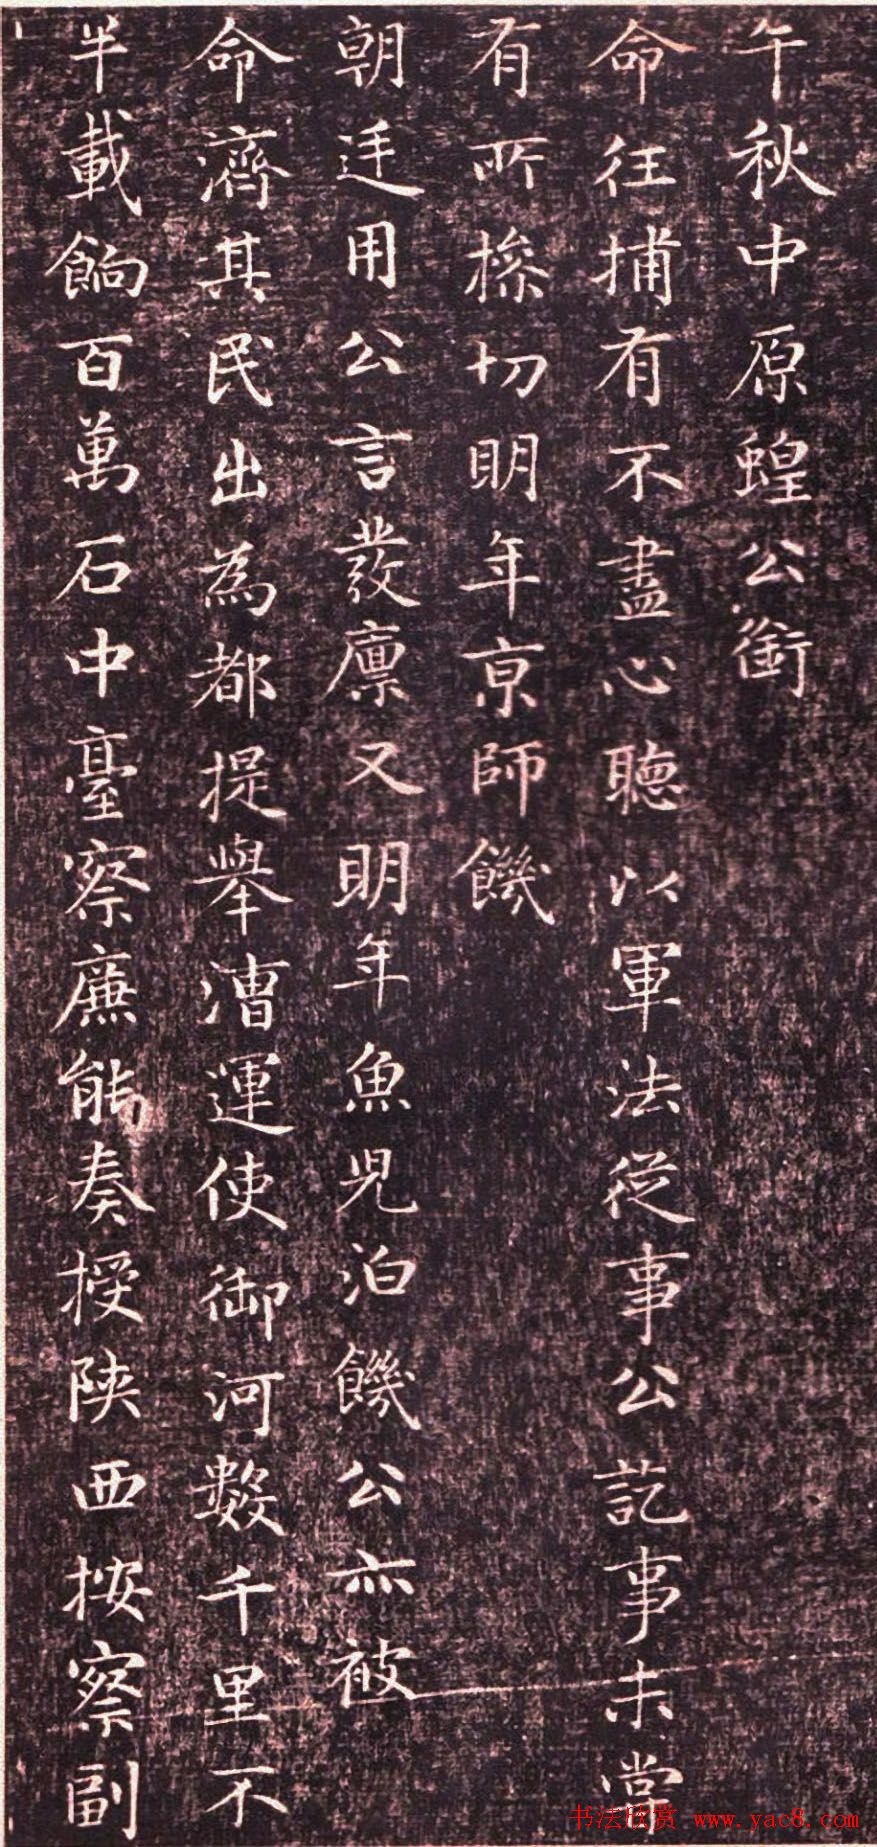 午秋中原蝗公銜
命往捕有不盡心聽以軍法從事公訖事未嘗
有所搽切明年京師饑
朝廷用公言發廪又明年魚児泊饑公亦被
命濟其民出為都提舉漕運使御河數千里不
半載餉百萬石中臺察廉能奏授陝西按察副
书法欣赏 www.yac8.com